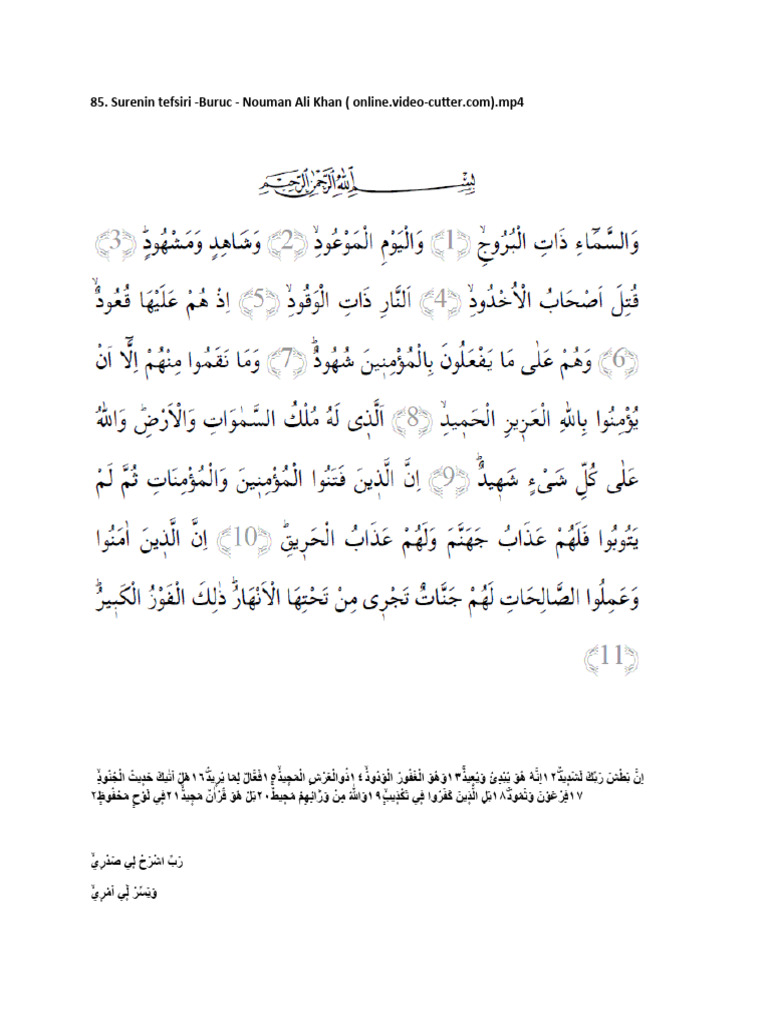 85. Surenin tefsiri -Buruc - Nouman Ali Khan ( online.video-cutter.com).mp4
بِسْمِ اللّٰهِ الرَّحْمٰنِ الرَّحِيمِ
وَالسَّمَٓاءِ ذَاتِ الْبُرُوجِۙ ﴿1﴾ وَالْيَوْمِ الْمَوْعُودِۙ ﴿2﴾ وَشَاهِدٍ وَمَشْهُودٍۜ ﴿3﴾
قُتِلَ اَصْحَابُ الْاُخْدُودِۙ ﴿4﴾ اَلنَّارِ ذَاتِ الْوَقُودِۙ ﴿5﴾ اِذْ هُمْ عَلَيْهَا قُعُودٌۙ
﴿6﴾ وَهُمْ عَلٰى مَا يَفْعَلُونَ بِالْمُؤْمِن۪ينَ شُهُودٌۜ ﴿7﴾ وَمَا نَقَمُوا مِنْهُمْ اِلَّٓا اَنْ
يُؤْمِنُوا بِاللّٰهِ الْعَز۪يزِ الْحَم۪يدِۙ ﴿8﴾ اَلَّذ۪ى لَهُ مُلْكُ السَّمٰوَاتِ وَالْاَرْضِۜ وَاللّٰهُ
عَلٰى كُلِّ شَىْءٍ شَه۪يدٌۜ ﴿9﴾ اِنَّ الَّذ۪ينَ فَتَنُوا الْمُؤْمِن۪ينَ وَالْمُؤْمِنَاتِ ثُمَّ لَمْ
يَتُوبُوا فَلَهُمْ عَذَابُ جَهَنَّمَ وَلَهُمْ عَذَابُ الْحَر۪يقِۜ ﴿10﴾ اِنَّ الَّذ۪ينَ اٰمَنُوا
وَعَمِلُوا الصَّالِحَاتِ لَهُمْ جَنَّاتٌ تَجْر۪ى مِنْ تَحْتِهَا الْاَنْهَارُۜ ذٰلِكَ الْفَوْزُ الْكَب۪يرُۜ
﴿11﴾
اِنَّ بَطْشَ رَبِّكَ لَشَد۪يدٌۜ١٢اِنَّهُ هُوَ يُبْدِئُ وَيُع۪يدُۚ١٣وَهُوَ الْغَفُورُ الْوَدُودُۙ١٤ذُوالْعَرْشِ الْمَج۪يدُۙ١٥فَعَّالٌ لِمَا يُر۪يدُۜ١٦هَلْ اَتٰيكَ حَد۪يثُ الْجُنُودِۙ
١٧فِرْعَوْنَ وَثَمُودَۜ١٨بَلِ الَّذ۪ينَ كَفَرُوا ف۪ي تَكْذ۪يبٍۙ١٩وَاللّٰهُ مِنْ وَرَٓائِهِمْ مُح۪يطٌۚ٢٠بَلْ هُوَ قُرْاٰنٌ مَج۪يدٌۙ٢١ف۪ي لَوْحٍ مَحْفُوظٍ٢٢
رَبِّ اشْرَحْ ل۪ي صَدْر۪يۙ
وَيَسِّرْ ل۪ٓي اَمْر۪يۙ